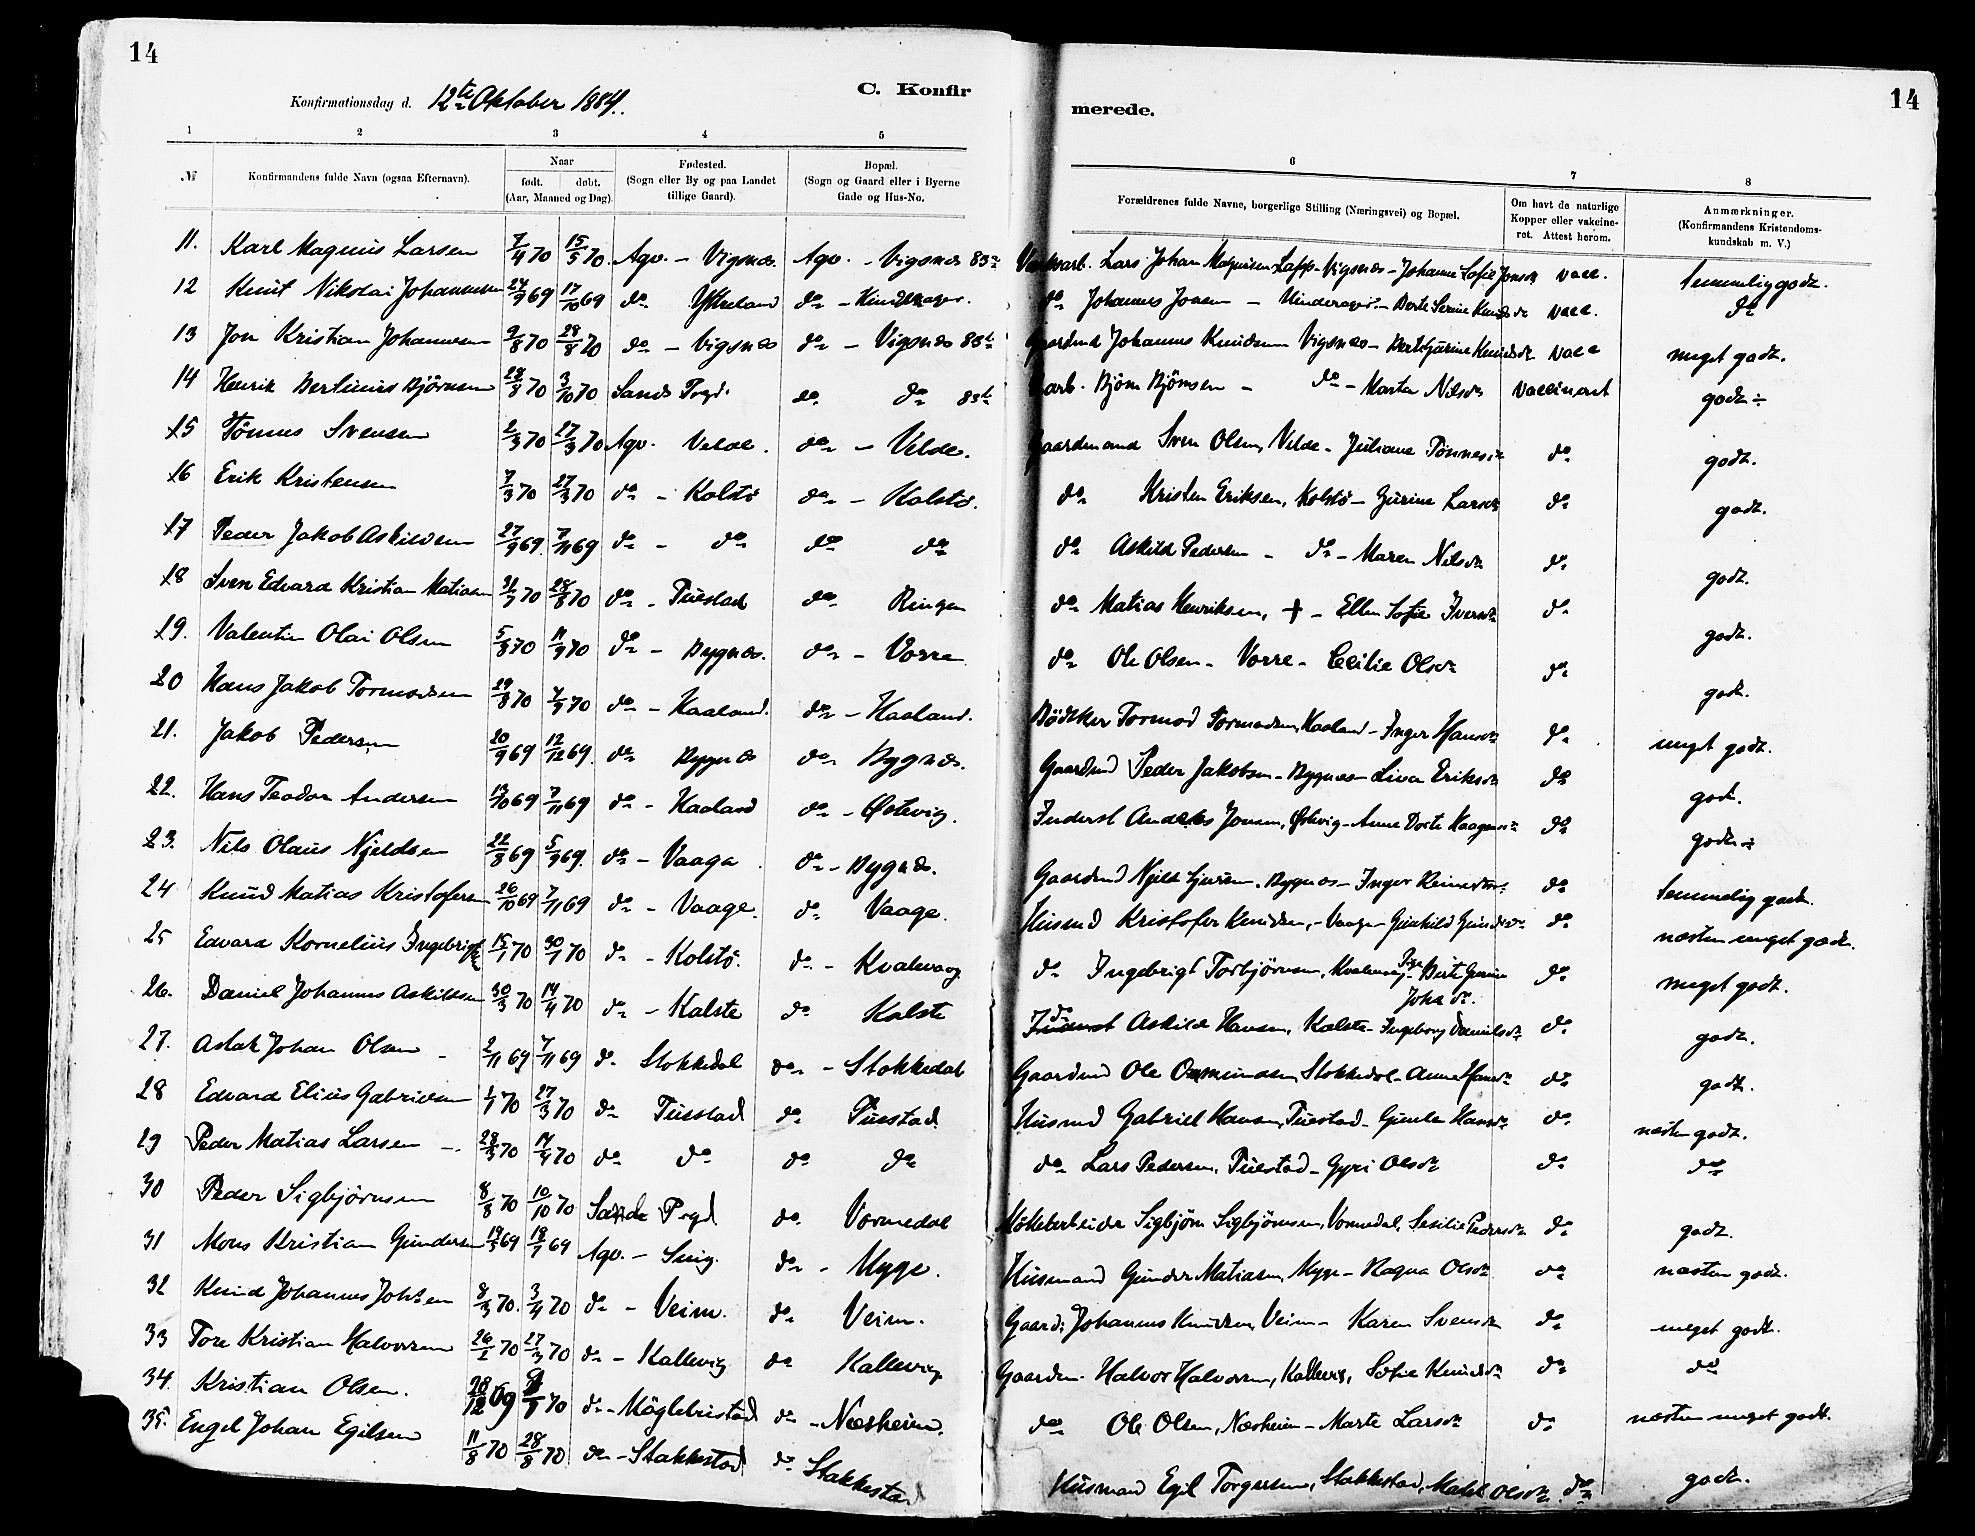 14
Konfirmationsdag d. 12te Oktober 1884.
C. Konfirmerede.
14
1 2 3 4 5 6 7 8
№ Konfirmandens fulde Navn (ogsaa Efternavn). Naar født. døbt. (Aar, Maaned og Dag). Fødested. (Sogn eller By og paa Landet tillige Gaard). Bopæl. (Sogn og Gaard eller i Byerne Gade og Hus-No. Forældrenes fulde Navne, borgerlige Stilling (Næringsvei) og Bopæl. Om havt de naturlige Kopper eller vakcineret. Attest herom. Anmærkninger. (Konfirmandens Kristendomskundskab m. V.)
11. Karl Magnus Larsen 7/4 70 15/5 70. Agv. - Vigsnæs. Agv. - Vigsnæs 83 Lars Johan Magnusen Vigsnæs - Johanne Sofie Jonsdr vacc. temmelig godt.
12 Knut Nikolai Johannesen 24/9 69 17/10 69 do do - do Johannes Jonsen - Berte Serine Knudsdr vacc. do
13 Jon Kristian Johannesen 2/8 70 28/8 70 do - Vigsnæs do - Vigsnæs 83 Gaardmd Johannes Knudsen Vigsnæs - Knudsdr vacc meget godt.
14 Henrik Bertinius Bjørnsen 28/8 70 3/10 70 Sands Prgd. do do 83 arb. Bjørn Bjørnsen - do - Marta Nilsdr vaccineret godt ÷
15 Tönnes Svensen 2/3 70 27/3 70 Agv. Velde. do - Velde. Gaardmand Sven Olsen, Velde - Juliane Tönnesdr do godt.
16 Erik Kristensen 7/3 70 27/3 70 do - Kolstö do - Kolstö. do Kristen Eriksen, Kolstö - Gurine Larsdr do godt.
17 Peder Jakob Askildsen 27/9 69. 7/11 69 do - do do do do Askild Pedersen - do - Maren Nilsdr do godt.
18 Sven Edvard Kristian Matiasen 31/7 70 28/8 70 do - Tuestad do Ringen do Matias Henriksen, + - Ellen Sofie Iversdr do godt.
19. Valentin Olai Olsen 5/8 70 11/9 70 do - Bygnes. do - Vorre do Ole Olsen - Vorre - Cecilie Olsdr do godt.
20 Hans Jakob Tormodsen 29/8 70 do - Haaland. do - Haaland. Bödtker Tormod Tormodsen, Haaland - Inger Hansdr do meget godt.
21. Jakob Pedersen 20/9 69 12/12 69. do Bygnæs do Bygnæs. Gaardmd Peder Jakobsen - Bygnæs - Eriksdr do godt.
22. Hans Teodor Andersen 13/10 69 7/11 69 do - Haaland do - Østevig. Inderst Anders Jonsen, Østevig - Anne Dorte do godt ÷
23. Nils Olaus Kjeldsen 22/8 69 5/9 69. do - Vaaga do - Bygnæs. Gaardmd Kjeld Bygnæs - Inger do temmelig godt.
24 Knud Matias Kristofersen 26/10 69 7/11 69 do - Vaage. do Vaage. Husmd Kristofer Knudsen, - Vaage - Gunhild do næsten meget godt.
25 Edvard Kornelius Ingebrigtsen 15/1 70 30/1 70 do - Kolstö. do - Kvalevaag do Ingebrigt Torbjørnsen, Kvalevaag - Berte Johs dr. do meget godt.
26. Daniel Johannes Askildsen 30/3 70 14/4 70 do - Kalstø do Kalstø do Askild Hansen, Kalstø - Ingeborg Danielsdr do godt.
27. Aslak Johan Olsen - 2/11 69 7/11 69 do Stokkedal do - Stokkedal Gaardmd Ole Osmundsen, Stokkedal - Anne Hansdr do godt.
28 Edvard Elius Gabrielsen 1/1 70 27/3 70 do Tuestad do Tuestad Husmd Gabriel Hansen, Tuestad - Hansdr do næsten godt.
29 Peder Matias Larsen - 28/3 70 14/4 70 do do do do do Lars Pedersen, Tuestad - Gyri Olsdr do do
30 Peder Sigbjørnsen 8/8 70 10/10 70 Sande Prgd do Vormedal Sigbjørn Sigbjørnsen, Vormedal, Sesilie Pedersdr do godt.
31 Mons Kristian Gundersen 19/5 69 18/7 69 Agv. - Snig. do - Myge. Husmand Gunder Matiasen, Myge - Ragna Olsdr do næsten godt.
32 Knud Johannes Johsen 8/3 70. 3/4 70 do - Veim. do Veim. Gaard: Johannes Knudsen, Veim - Karen Svensdr do meget godt.
33 Tore Kristian Halvorsen 26/2 70 27/3 70 do - Kallevig do Kallevig Gaardm. Halvor Halvorsen, Kallevig, Sofie Knudsdr do do
34. Kristian Olsen. 28/12 69 70 do - Mögleböstad do - Næsheim. do Ole Olsen, Næsheim - Marte Larsdr do næsten meget godt.
35. Engel Johan Egilsen 11/8 70 28/8 70 do - Stakkestad do Stakkestad Husmand Egil Torgersen, Stakkestad, Malene Olsdr. do godt.